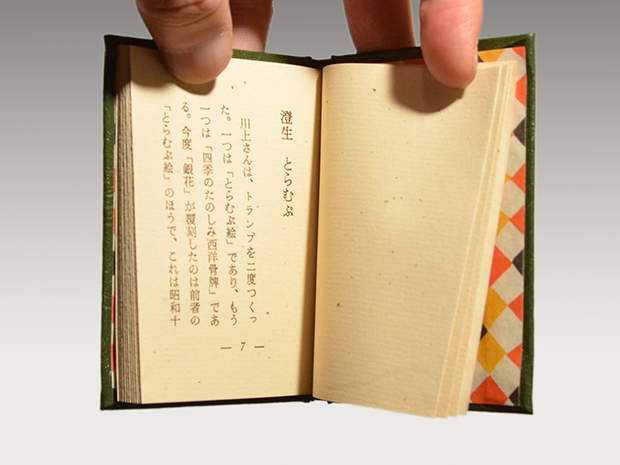 澄生 とらむぷ
川上さんは、トランプを二度つくっ
た。一つは「とらむぷ絵」であり、もう
一つは「四季のたのしみ西洋骨牌」であ
る。今度「銀花」が覆刻したのは前者の
「とらむぷ絵」のほうで、これは昭和十
— 7 —